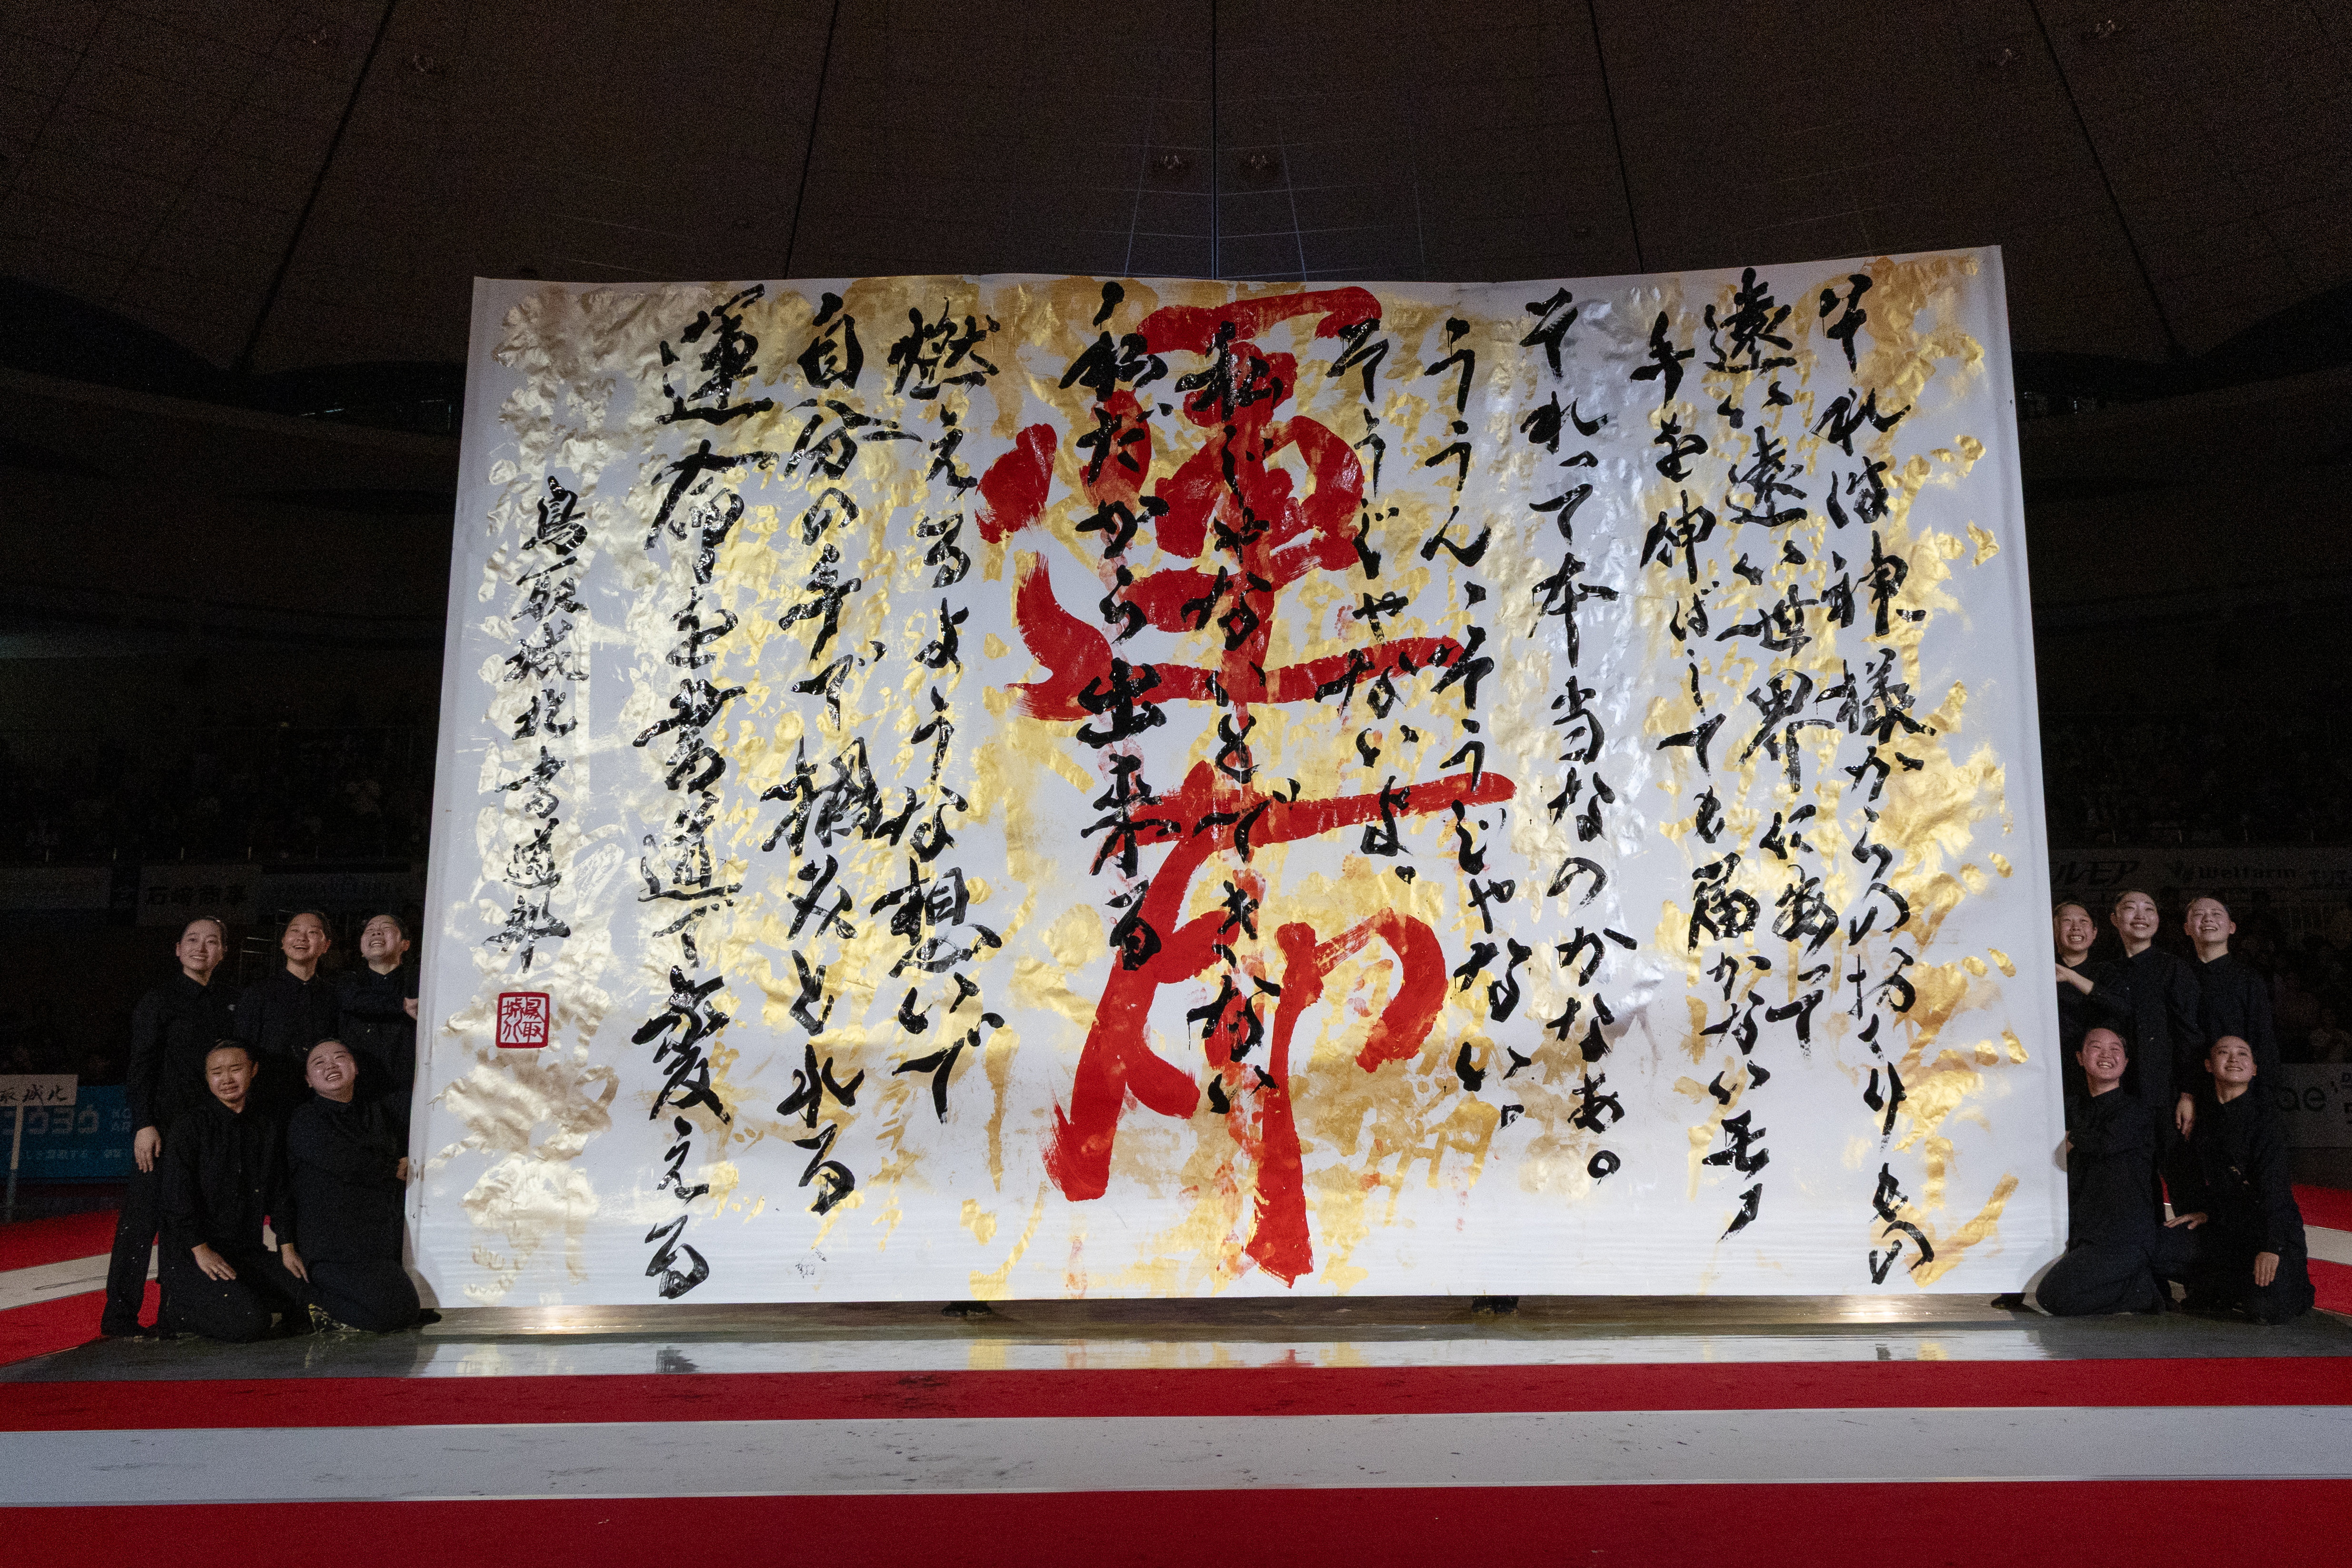 それは神様からの授かりもの
遠い遠い世界にあって
手を伸ばしても届かないモノ
それって本当なのかなあ。
ううん、そうじゃない。
そうじゃないよ。
私じゃないとできない
私だから出来る
燃えるような想いで
自分の手で掴みとれる
運命を書道で変える
鳥取城北書道部
運命
鳥取城北
取城北
石
ルモア
Welfarm